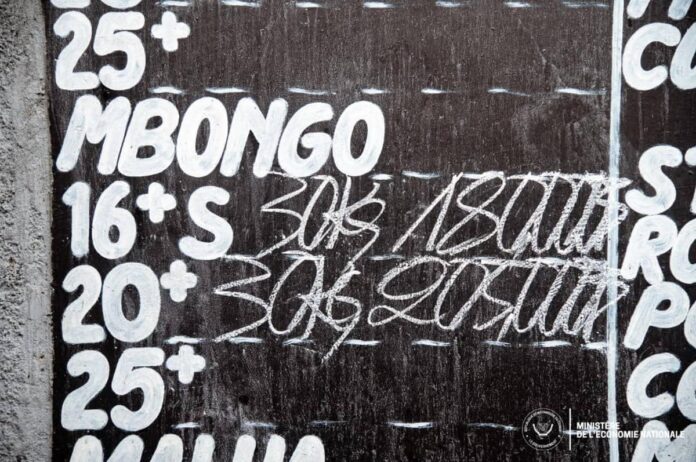 25+
MBONGO
16+S 30kg 180,000F
20+ 30kg 205,000F
25+
MINISTÈRE
DE L'ÉCONOMIE NATIONALE